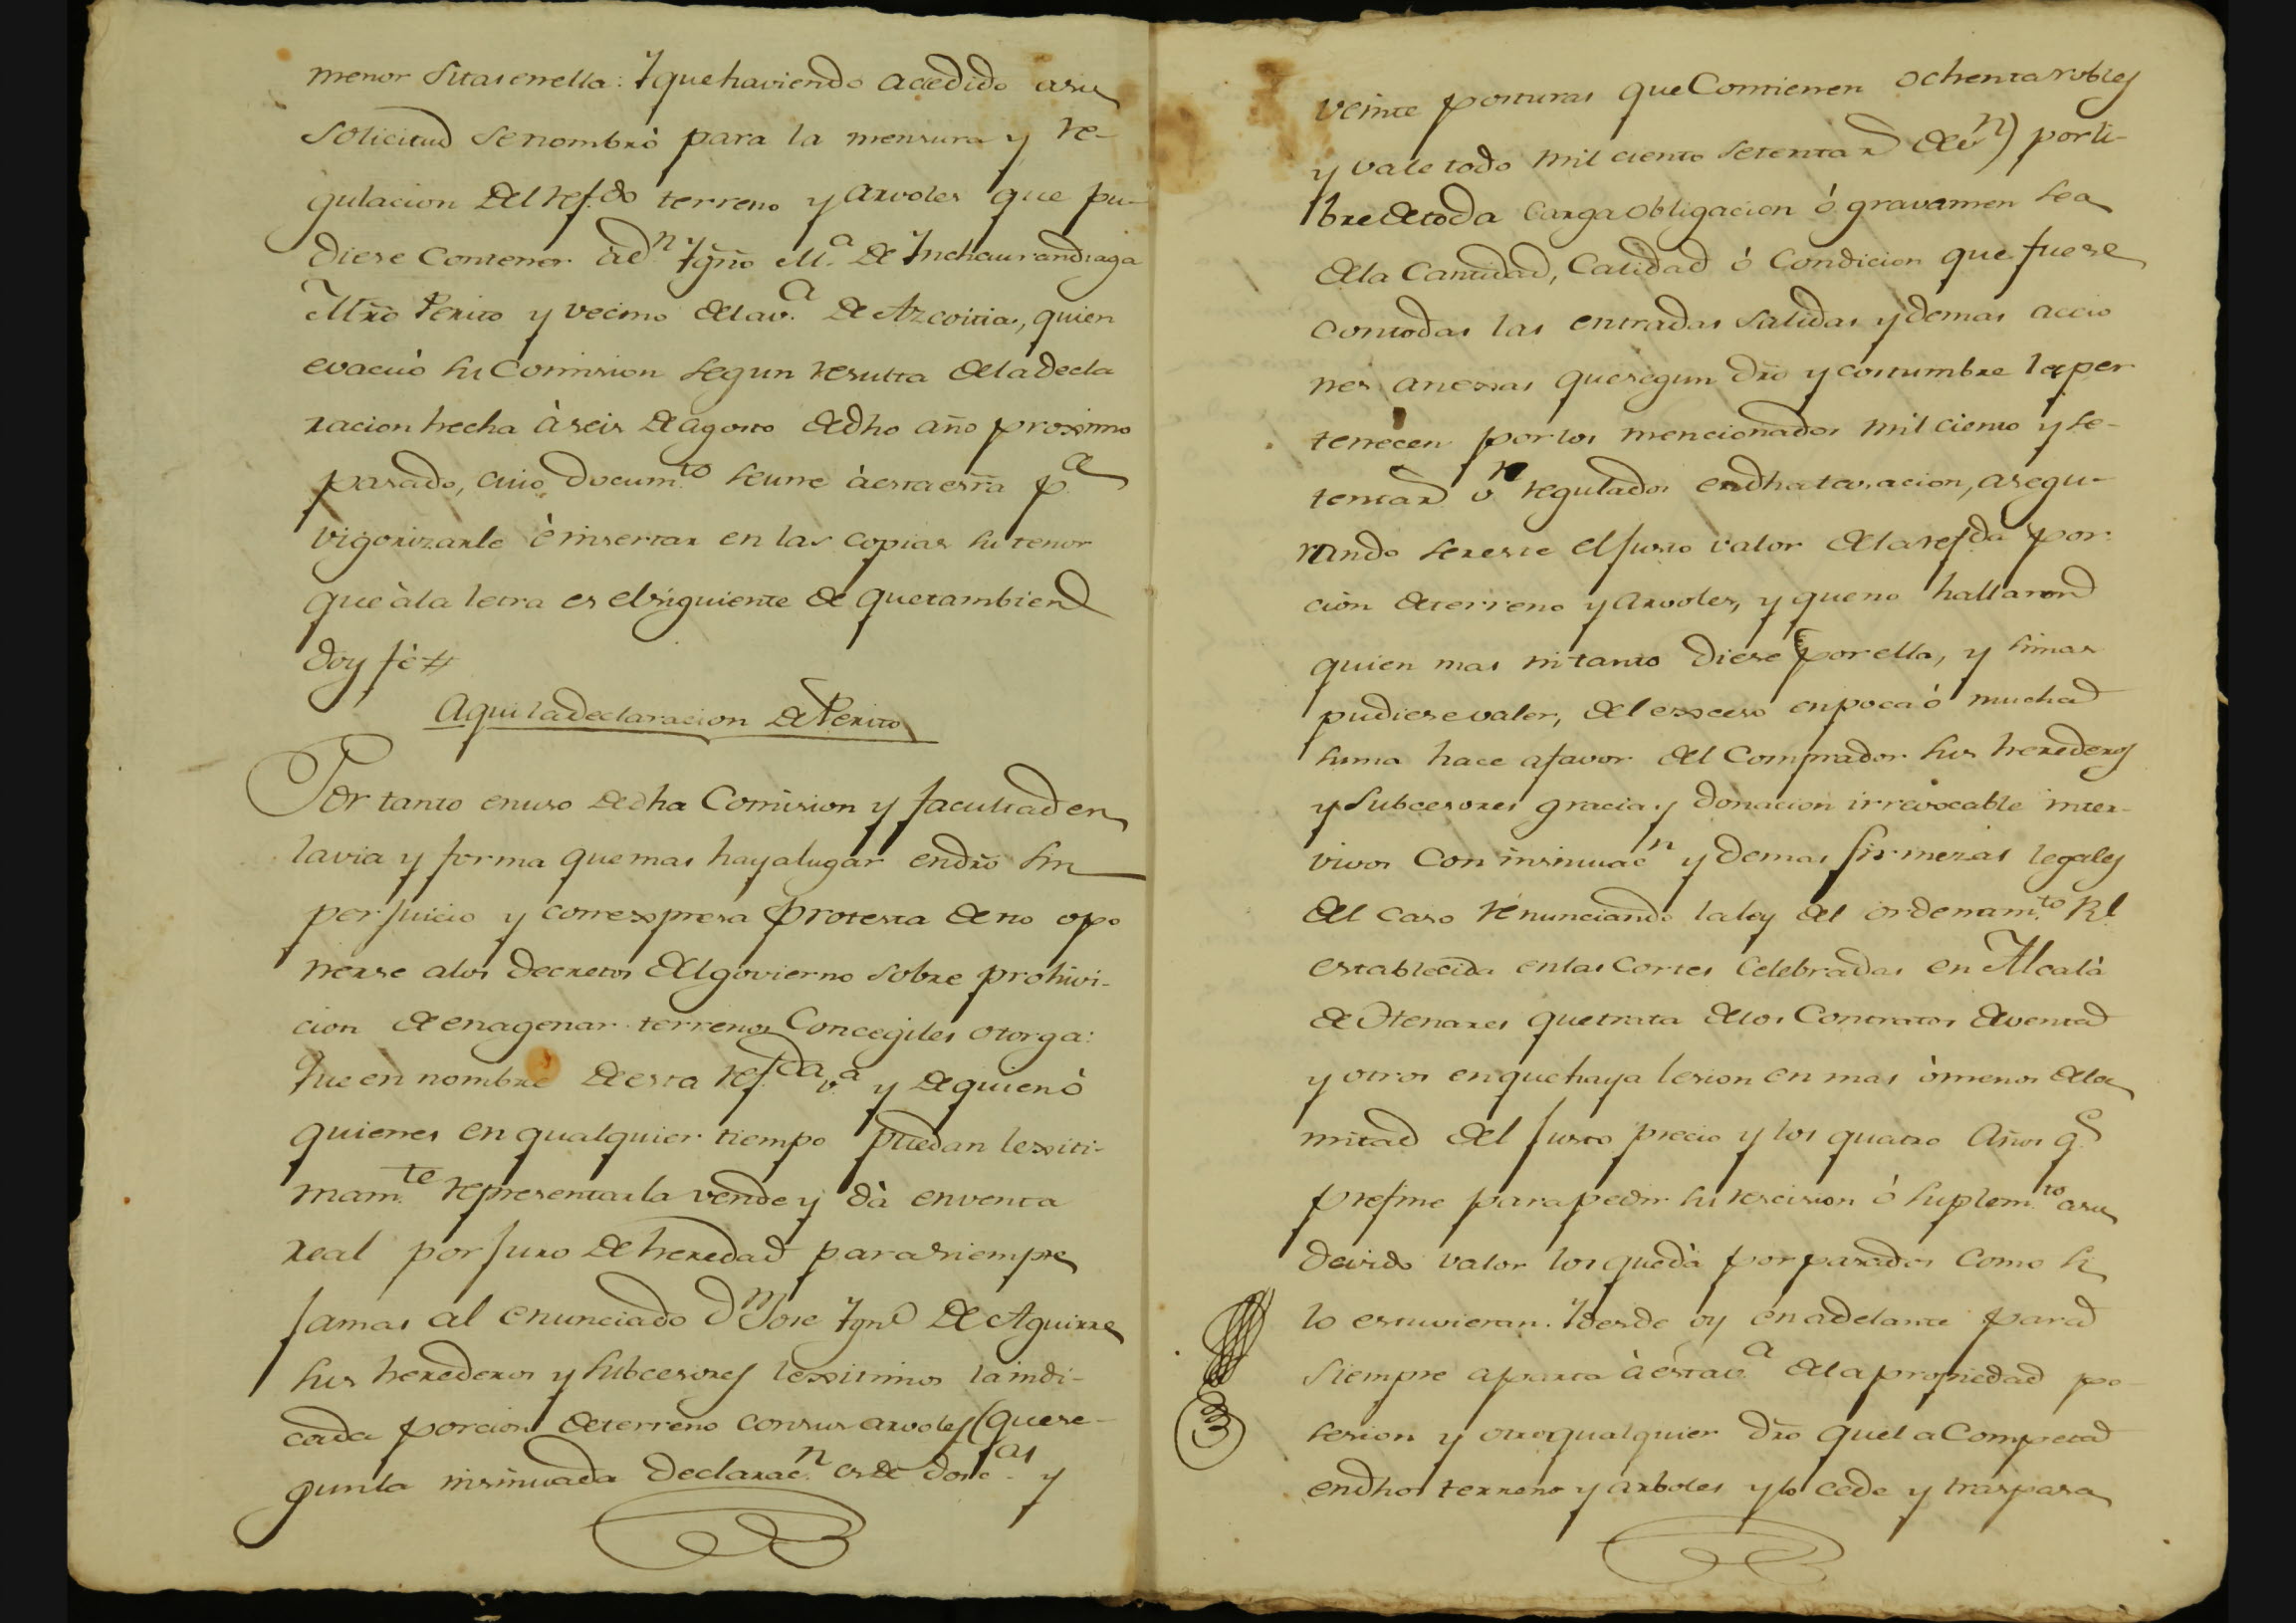 menor sitas en ella: Y que haviendo accedido a su
solicitud se nombró para la mensura y re-
gulacion del refdo terreno y arvoles que pu-
diese contener à Dn Ygnº Mª de Ynchaurandiaga
Mrõ Perito y vecino de la vª de Azcoitia, quien
evacuò su Comision segun resulta de la decla
racion hecha à seis de agosto de dho año proximo
pasado, cuio documto se une à esta esrra pª
vigorizarle è insertar en las copias su tenor
que à la letra es el siguiente de que tambien
doy fè #
Aqui la declaracion de Perito
Por tanto en uso de dha Comision y facultad en
la via y forma que mas haya lugar en drõ sin
perjuicio y con expresa protesta de no opo
nerse a los decretos del govierno sobre prohivi-
cion de enagenar terrenos Concegiles otorga:
Que en nombre de esta refda vª y de quien ò
quienes en qualquier tiempo puedan lexiti-
mamte representarla vende y dà en venta
real por juro de heredad para siempre
jamas al enunciado Dn Jose Ygnº de Aguirre
sus herederos y subcesores lexitimos la indi-
cada porcion de terreno con sus arvoles (que se-
gun la insinuada declaracn es de docas y
veinte posturas que contienen ochenta robles
y vale todo mil ciento setenta r de vn) por li-
bre de toda carga obligacion ó gravamen sea
de la Cantidad, Calidad ó Condicion que fuese
con todas las entradas salidas y demas accio
nes anexas que segun drõ y costumbre le per
tenecen por los mencionados mil ciento y se-
tenta r vn regulados en dha tasacion, asegu-
rando ser este el justo valor de la refda por-
cion de terreno y arvoles, y que no hallaron
quien mas ni tanto diese por ella, y si mas
pudiese valer, del exceso en poca ó mucha
suma hace a favor del Comprador sus herederos
y subcesores gracia y donacion irrevocable inter-
vivos con insinuacn y demas firmezas legales
del caso renunciando la ley del ordenamto Rl
establecida en las Cortes celebradas en Alcalà
de Henares que trata de los Contratos de venta
y otros en que haya lesion en mas ò menos de la
mitad del justo precio y los quatro años qe
prefine para pedir su rescision ó suplemto a su
devido valor los que dà por pasados como si
lo estuvieran. Y desde oy en adelante para
siempre aparta à esta vª de la propiedad po-
sesion y otro qualquier drõ que la Competa
en dhos terreno y arboles y lo cede y traspasa